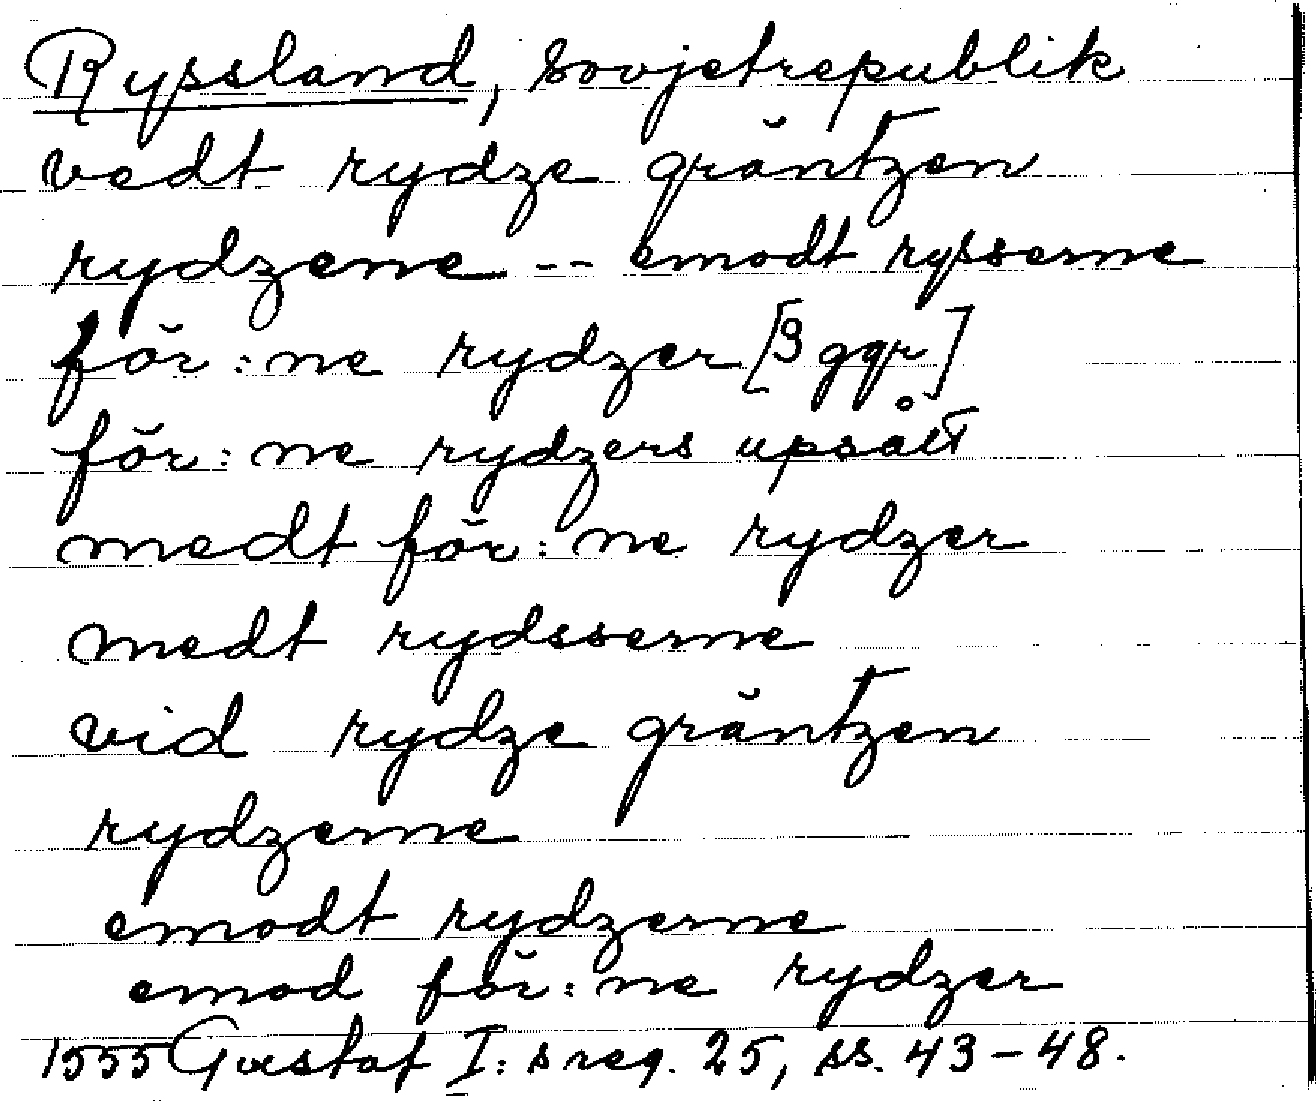 Ryssland, Sovjetrepublik
vedt rydze gräntzen
rydzerne -- emodt rysserne
för:ne rydzer [3 ggr]
för:ne rydzers upsått
medt för:ne rydzer
medt rydsserne
vid rydze gräntzen
rydzerne
emodt rydzerne
emod för:ne rydzer
1555 Gustaf I:s reg. 25, ss. 43-48.